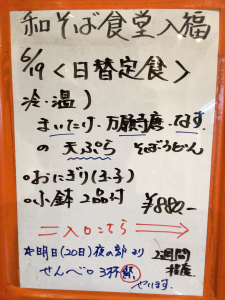 和そば食堂入福
6/19 〈日替定食〉
冷・温)
まいたけ・万願寺唐・なす
の天ぷら そばorうどん
○おにぎり(玉子)
○小鉢2品付 ¥880-
入口こちら
☆明日(20日)夜の部より
せんべロ3杯祭
2週間
やります。